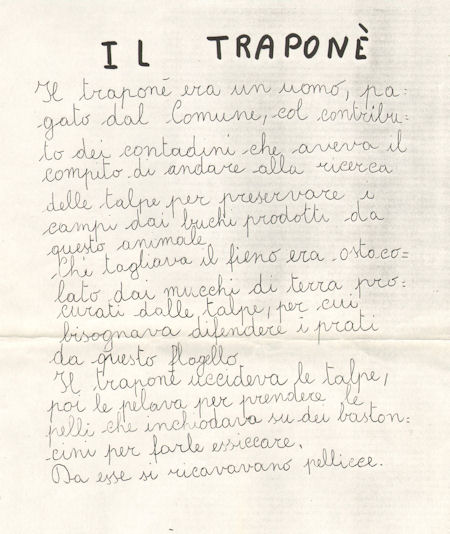 IL TRAPONÈ
Il traponè era un uomo, pa=
gato dal Comune, col contribu=
to dei contadini che aveva il
compito di andare alla ricerca
delle talpe per preservare i
campi dai buchi prodotti da
questo animale.
Chi tagliava il fieno era ostaco=
lato dai mucchi di terra pro=
curati dalle talpe, per cui
bisognava difendere i prati
da questo flagello
Il traponè uccideva le talpe,
poi le pelava per prendere le
pelli che inchiodava su dei baston=
cini per farle essiccare.
Da esse si ricavavano pellicce.